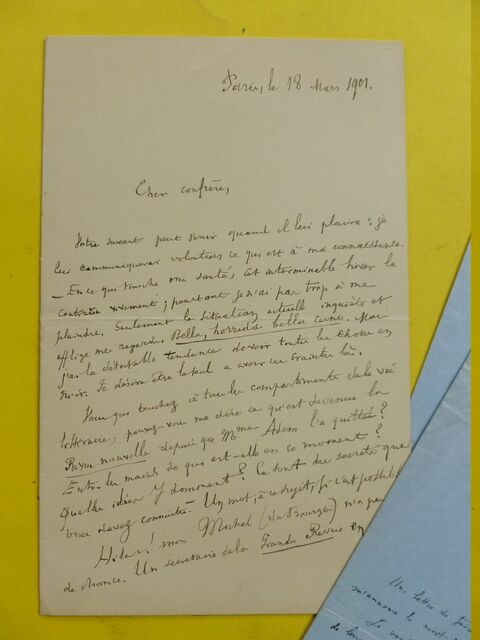 Paris, le 18 Mars 1901.
Cher confrère,
Votre savant peut venir quand il lui plaira : je
lui communiquerai volontiers ce qui est à ma connaissance.
— En ce qui touche ma santé, cet interminable hiver la
contrarie vivement ; pourtant je n'ai pas trop à me
plaindre. Seulement la situation actuelle inquiète et
afflige mes regards. Bella, horrida bella cerno. Mais
j'ai la détestable tendance de voir toutes les choses en
noir. Je désire être le seul à avoir ces craintes là.
Vous qui touchez à tous les compartiments de la vie
littéraire, pouvez-vous me dire ce qu'est devenue la
Revue nouvelle depuis que Mme Adam l'a quittée ?
Entre les mains de qui est-elle en ce moment ?
Quelles idées y dominent ? Ce sont des secrets que
vous devez connaître. Un mot, à ce sujet, si c'est possible.
Hélas ! mon Michel (de Bourges) n'a pas
de chance. Un secrétaire de la Grande Revue
Une lettre de
m'annonce la mort
Je vous
de